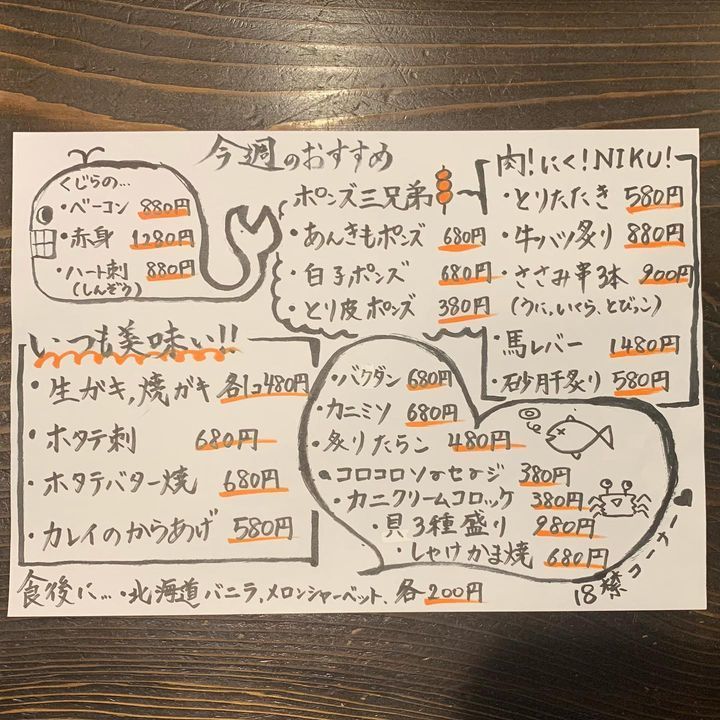 今週のおすすめ
くじらの…
・ベーコン 880円
・赤身 1280円
・ハート刺 880円
(しんぞう)
ポンズ三兄弟
・あんきもポンズ 680円
・白子ポンズ 680円
・とり皮ポンズ 380円
肉!にく!NIKU!
・とりたたき 580円
・牛ハツ炙り 880円
・ささみ串3本 900円
(うに、いくら、とびっこ)
・馬レバー 1480円
・砂肝炙り 580円
いつも美味い!!
・生ガキ,焼ガキ 各1コ480円
・ホタテ刺 680円
・ホタテバター焼 680円
・カレイのからあげ 580円
・バクダン 680円
・カニミソ 680円
・炙りたらこ 480円
・コロコロソーセージ 380円
・カニクリームコロッケ 380円
・貝3種盛り 980円
・しゃけかま焼 680円
18禁コーナー
食後に…・北海道バニラ、メロンシャーベット、各200円